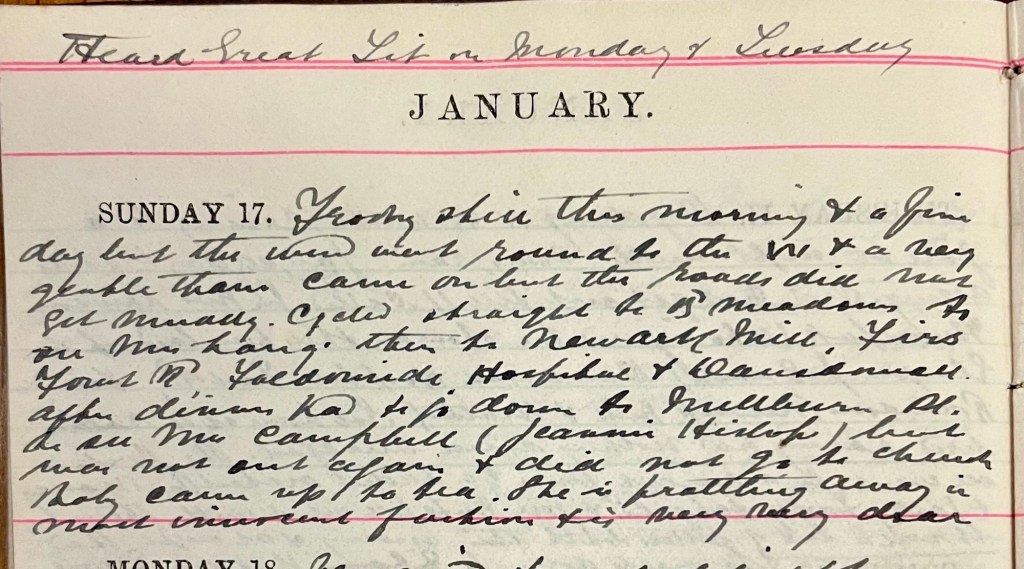 Heard Great Tit on Monday & Tuesday
JANUARY.
SUNDAY 17. Frosty still this morning & a fine
day but the wind went round to the W & a very
gentle thaw came on but the roads did not
get muddy. Cycled straight to B meadows to
see Mrs Laing. then to Newark Mill, Firs
Hospital &
after dinner had to go down to Millburn St.
to see Mrs Campbell (Jeannie Hislop) but
was not out again & did not go to church
Baby came up to tea. She is prattling away in
most innocent fashion & is very very dear
MONDAY 18.